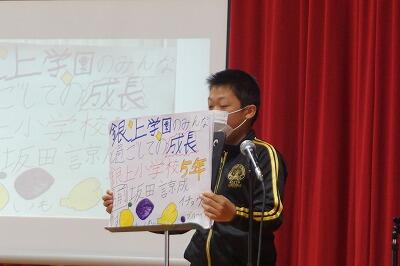 上学園のみんな
ごしての成長
上小学校
坂田 諒成
銀上学園のみんな
過ごしての成長
銀上小学校5年
前坂田 諒成
イチョウ